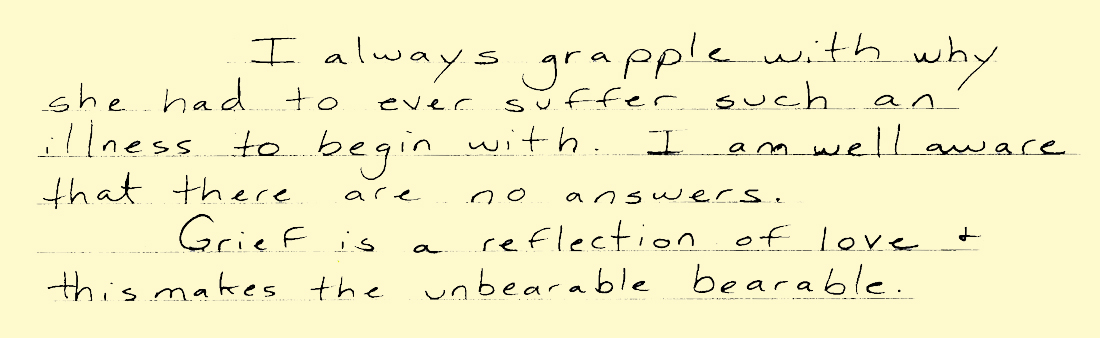 I always grapple with why
she had to ever suffer such an
illness to begin with. I am well aware
that there are no answers.
Grief is a reflection of love +
this makes the unbearable bearable.